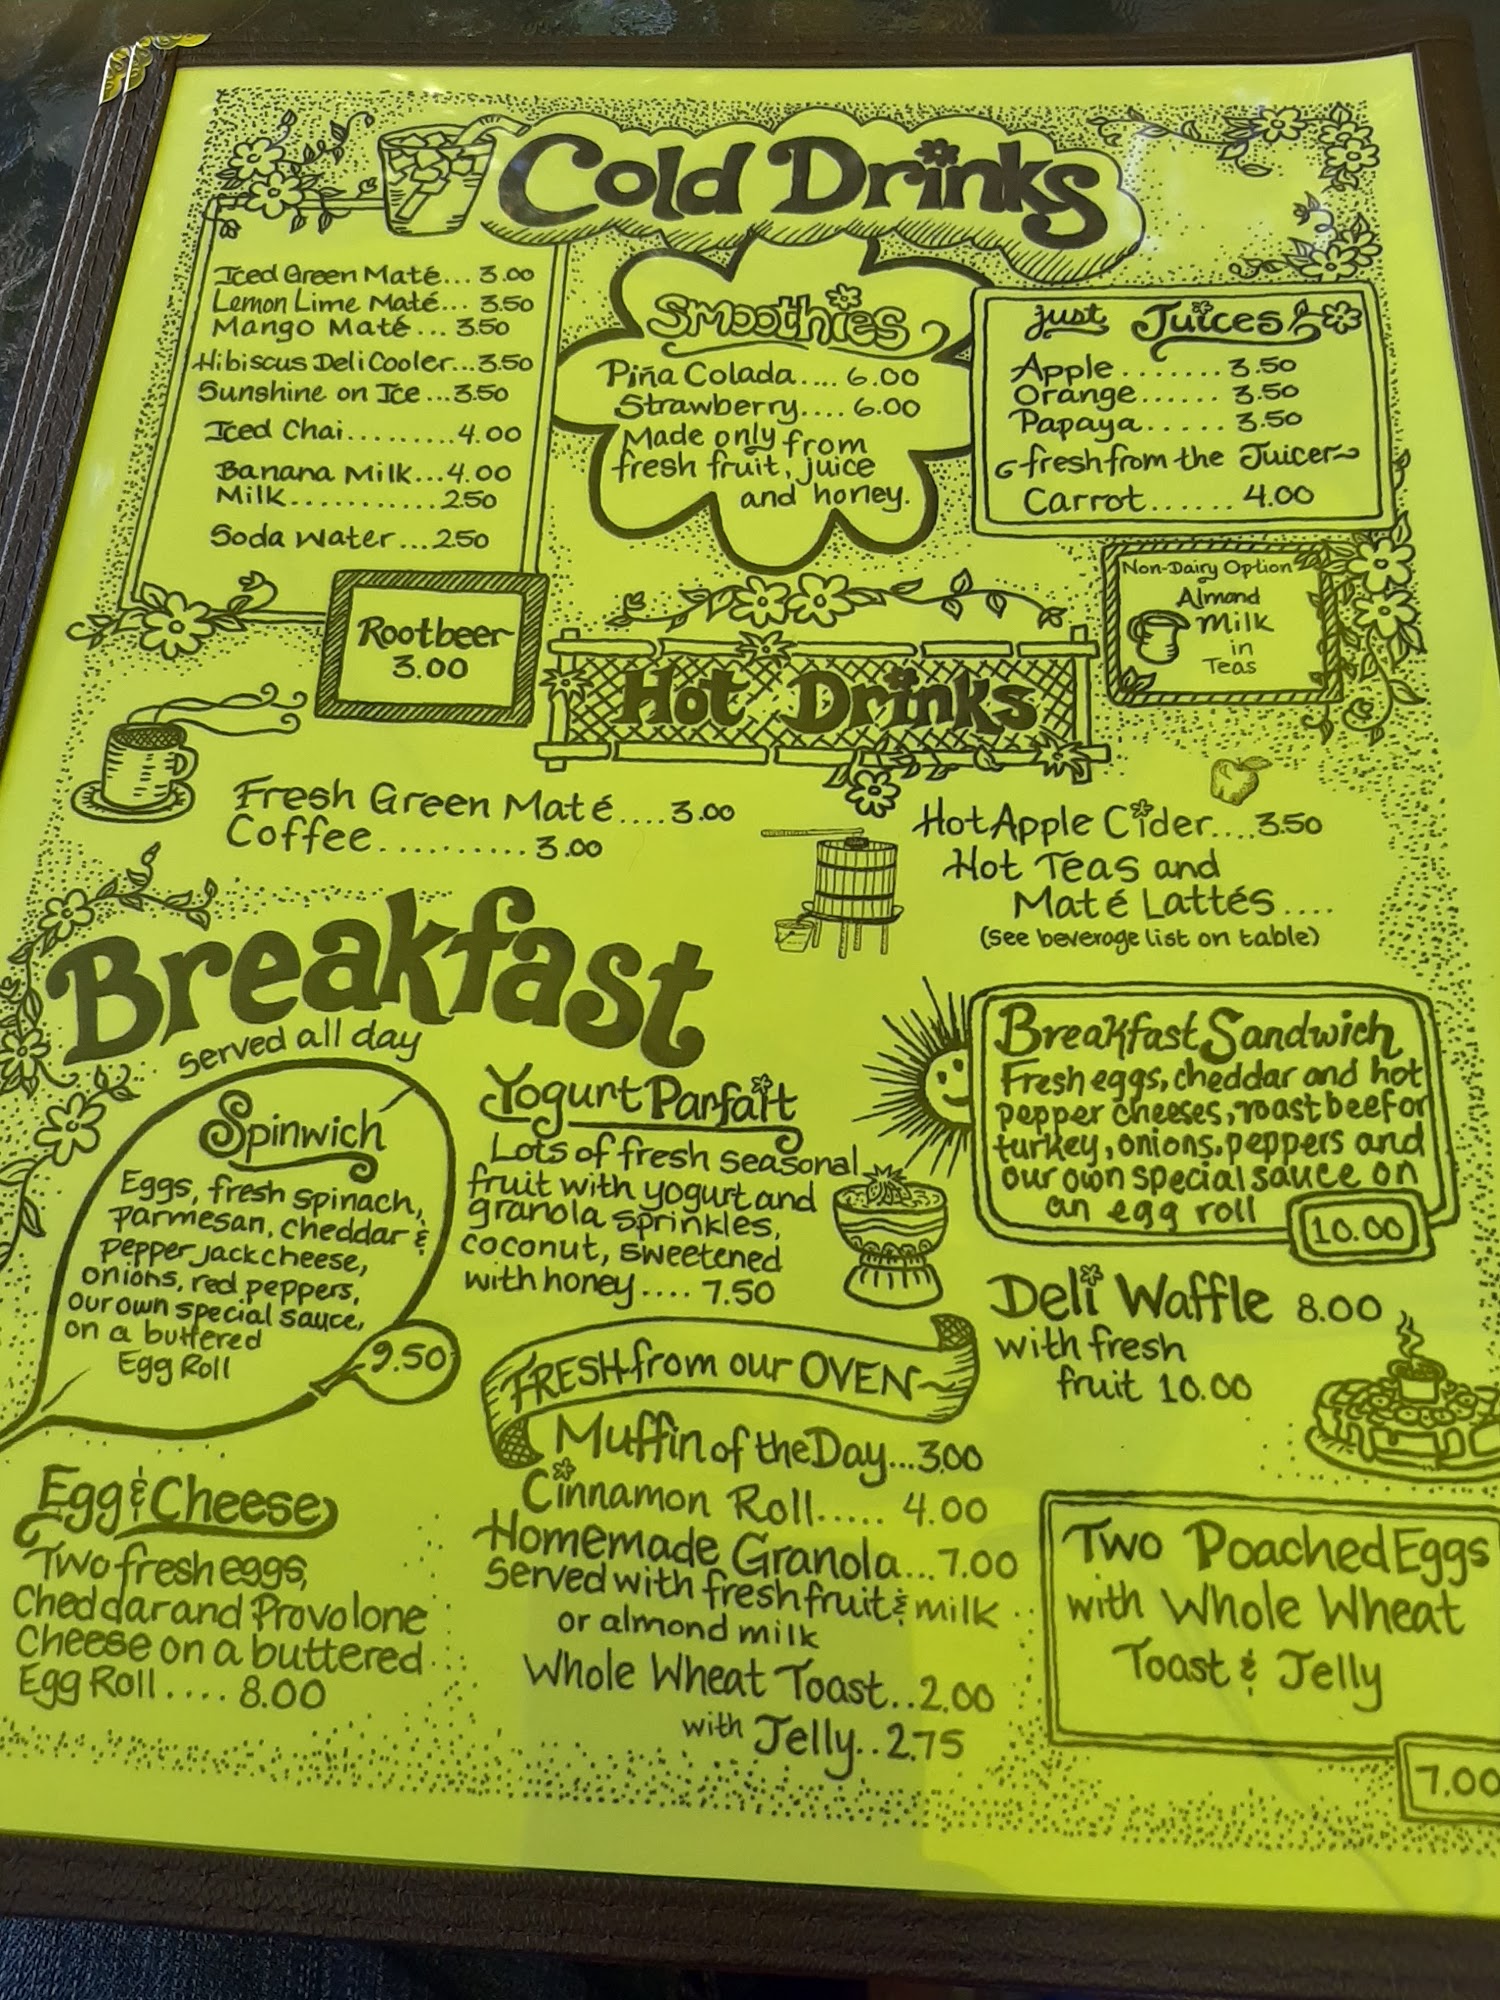 Cold Drinks
Iced Green Maté... 3.00
Lemon Lime Maté... 3.50
Mango Maté... 3.50
Hibiscus Deli Cooler...3.50
Sunshine on Ice ...3.50
Iced Chai.........4.00
Banana Milk...4.00
Milk............2.50
Soda Water...2.50
Rootbeer
3.00
Smoothies
Piña Colada.... 6.00
Strawberry.... 6.00
Made only from
fresh fruit, juice
and honey.
just Juices
Apple ........ 3.50
Orange....... 3.50
Papaya...... 3.50
fresh from the Juicer
Carrot...... 4.00
Non-Dairy Option
Almond
Milk
in
Teas
Hot Drinks
Fresh Green Maté....3.00
Coffee..........3.00
Hot Apple Cider....3.50
Hot Teas and
Maté Lattés....
(see beverage list on table)
Breakfast
served all day
Spinwich
Eggs, fresh spinach,
parmesan, cheddar &
pepper jack cheese,
onions, red peppers,
our own special sauce,
on a buttered
Egg Roll
9.50
Egg & Cheese
Two fresh eggs,
Cheddar and Provolone
Cheese on a buttered
Egg Roll.... 8.00
Yogurt Parfait
Lots of fresh seasonal
fruit with yogurt and
granola sprinkles,
coconut, sweetened
with honey.... 7.50
FRESH from our OVEN
Muffin of the Day...3.00
Cinnamon Roll..... 4.00
Homemade Granola...7.00
served with fresh fruit & milk
or almond milk
Whole Wheat Toast..2.00
with Jelly..2.75
Breakfast Sandwich
Fresh eggs, cheddar and hot
pepper cheeses, roast beef or
turkey, onions, peppers and
our own special sauce on
an egg roll
10.00
Deli Waffle 8.00
with fresh
fruit 10.00
Two Poached Eggs
with Whole Wheat
Toast & Jelly
7.00